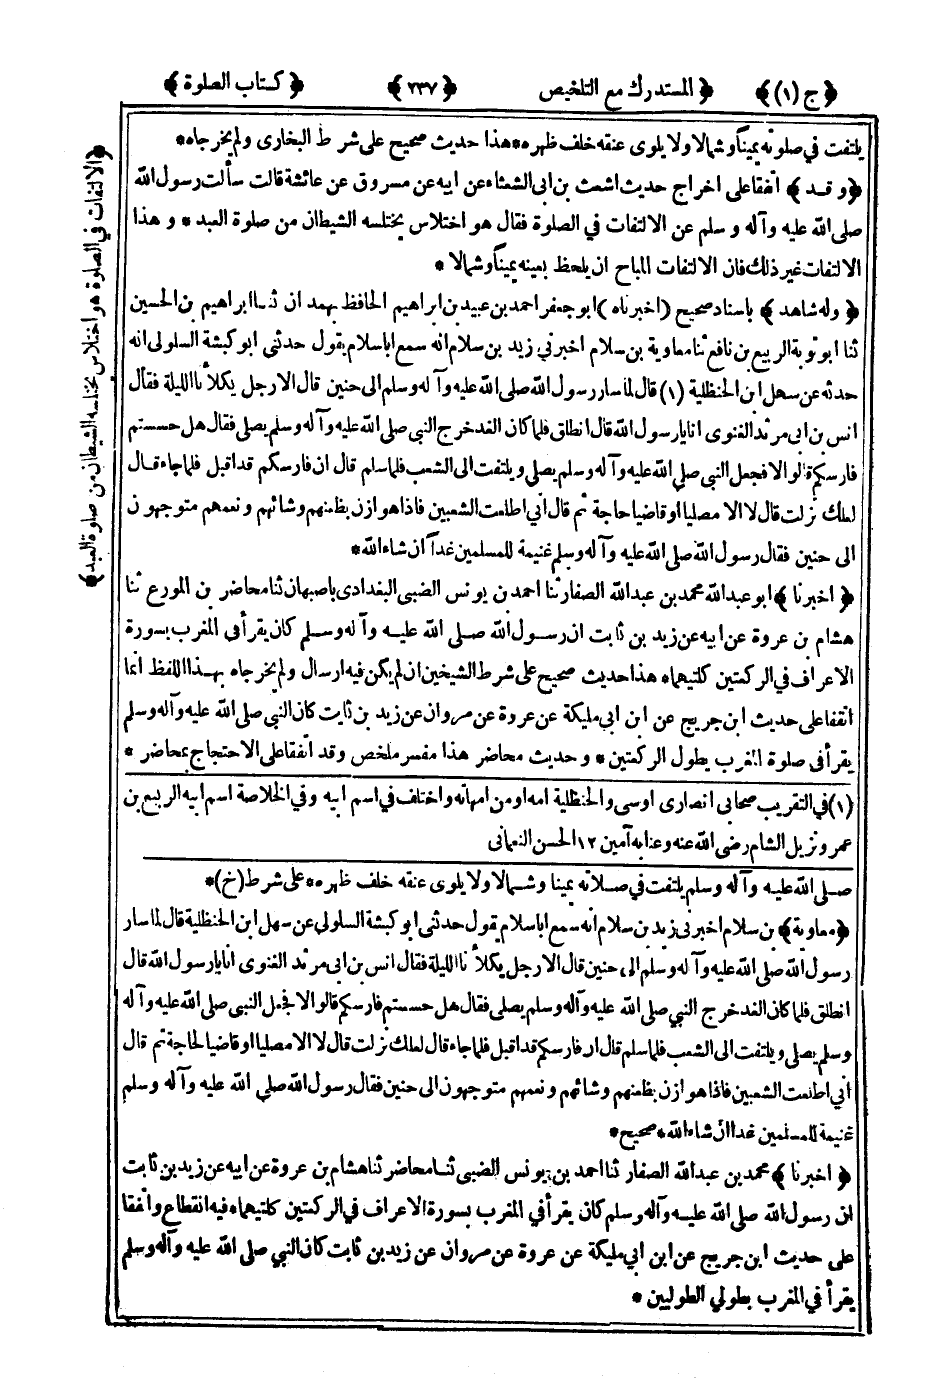 ﴿ ج (١) ﴾ ﴿ المستدرك مع التلخيص ﴿ ٢٣٧ ﴾ ﴿ كتاب الصلوة ﴾
يلتفت في صلوته يميناً وشمالا ولا يلوى عنقه خلف ظهره * هذا حديث صحيح على شرط البخارى ولم يخرجاه *
﴿ وقد ﴾ اتفقا على اخراج حديث اشعث بن ابى الشعثاء عن ابيه عن مسروق عن عائشة قالت سألت رسول الله
صلى الله عليه وآله وسلم عن الالتفات في الصلوة فقال هو اختلاس يختلسه الشيطان من صلوة العبد * وهذا
الالتفات غير ذلك فان الالتفات المباح ان يلحظ بعينه يميناً وشمالا *
﴿ وله شاهد ﴾ باسناد صحيح (اخبرناه) ابو جعفر احمد بن عبيد بن ابراهيم الحافظ بهمدان ثنا ابراهيم بن الحسين
ثنا ابو توبة الربيع بن نافع ثنا معاوية بن سلام اخبرني زيد بن سلام انه سمع ابا سلام يقول حدثني ابو كبشة السلولى انه
حدثه عن سهل ابن الحنظلية (١) قال لما سار رسول الله صلى الله عليه وآله وسلم الى حنين قال الا رجل يكلأنا الليلة فقال
انس بن ابى مرثد الغنوى انا يا رسول الله قال انطلق فلما كان الغد خرج النبي صلى الله عليه وآله وسلم يصلى فقال هل حسستم
فارسكم قالوا لا فجعل النبي صلى الله عليه وآله وسلم يصلى ويلتفت الى الشعب فلما سلم قال ان فارسكم قد اقبل فلما جاء قال
لعلك نزلت قال لا الا مصليا او قاضيا حاجة ثم قال اني اطلعت الشعبين فاذا هوازن بظعنهم وشائهم ونعمهم متوجهون
الى حنين فقال رسول الله صلى الله عليه وآله وسلم غنيمة للمسلمين غداً ان شاء الله *
﴿ اخبرنا ﴾ ابو عبد الله محمد بن عبد الله الصفار ثنا احمد بن يونس الضبى البغدادى باصبهان ثنا محاضر بن المورع ثنا
هشام بن عروة عن ابيه عن زيد بن ثابت ان رسول الله صلى الله عليه وآله وسلم كان يقرأ في المغرب بسورة
الاعراف في الركعتين كلتيهما * هذا حديث صحيح على شرط الشيخين ان لم يكن فيه ارسال ولم يخرجاه بهذا اللفظ انما
اتفقا على حديث ابن جريج عن ابن ابى مليكة عن عروة عن مروان عن زيد بن ثابت كان النبي صلى الله عليه وآله وسلم
يقرأ في صلوة المغرب بطول الركعتين * وحديث محاضر هذا مفسر ملخص وقد اتفقا على الاحتجاج بمحاضر *
(١) في التقريب صحابي انصارى اوسى والحنظلية امه او من امهاته واختلف في اسم ابيه وفي الخلاصة اسم ابيه الربيع بن
عمرو نزيل الشام رضى الله عنه وعنا به آمين ١٢ الحسن النعمانى
صلى الله عليه وآله وسلم يلتفت في صلاته يمينا وشمالا ولا يلوى عنقه خلف ظهره * على شرط (خ) *
﴿ معاوية ﴾ بن سلام اخبرني زيد بن سلام انه سمع ابا سلام يقول حدثني ابو كبشة السلولى عن سهل ابن الحنظلية قال لما سار
رسول الله صلى الله عليه وآله وسلم الى حنين قال الا رجل يكلأنا الليلة فقال انس بن ابى مرثد الغنوى انا يا رسول الله قال
انطلق فلما كان الغد خرج النبي صلى الله عليه وآله وسلم يصلى فقال هل حسستم فارسكم قالوا لا فجعل النبى صلى الله عليه وآله
وسلم يصلى ويلتفت الى الشعب فلما سلم قال ان فارسكم قد اقبل فلما جاء قال لعلك نزلت قال لا الا مصليا او قاضيا لحاجة ثم قال
اني اطلعت الشعبين فاذا هوازن بظعنهم وشائهم ونعمهم متوجهون الى حنين فقال رسول الله صلى الله عليه وآله وسلم
غنيمة للمسلمين غدا ان شاء الله * صحيح *
﴿ اخبرنا ﴾ محمد بن عبد الله الصفار ثنا احمد بن يونس الضبى ثنا محاضر ثنا هشام بن عروة عن ابيه عن زيد بن ثابت
ان رسول الله صلى الله عليه وآله وسلم كان يقرأ في المغرب بسورة الاعراف في الركعتين كلتيهما * فيه انقطاع واتفقا
على حديث ابن جريج عن ابن ابى مليكة عن عروة عن مروان عن زيد بن ثابت كان النبي صلى الله عليه وآله وسلم
يقرأ في المغرب بطولي الطوليين *
﴿ الالتفات في الصلوة هو اختلاس يختلسه الشيطان من صلوة العبد ﴾